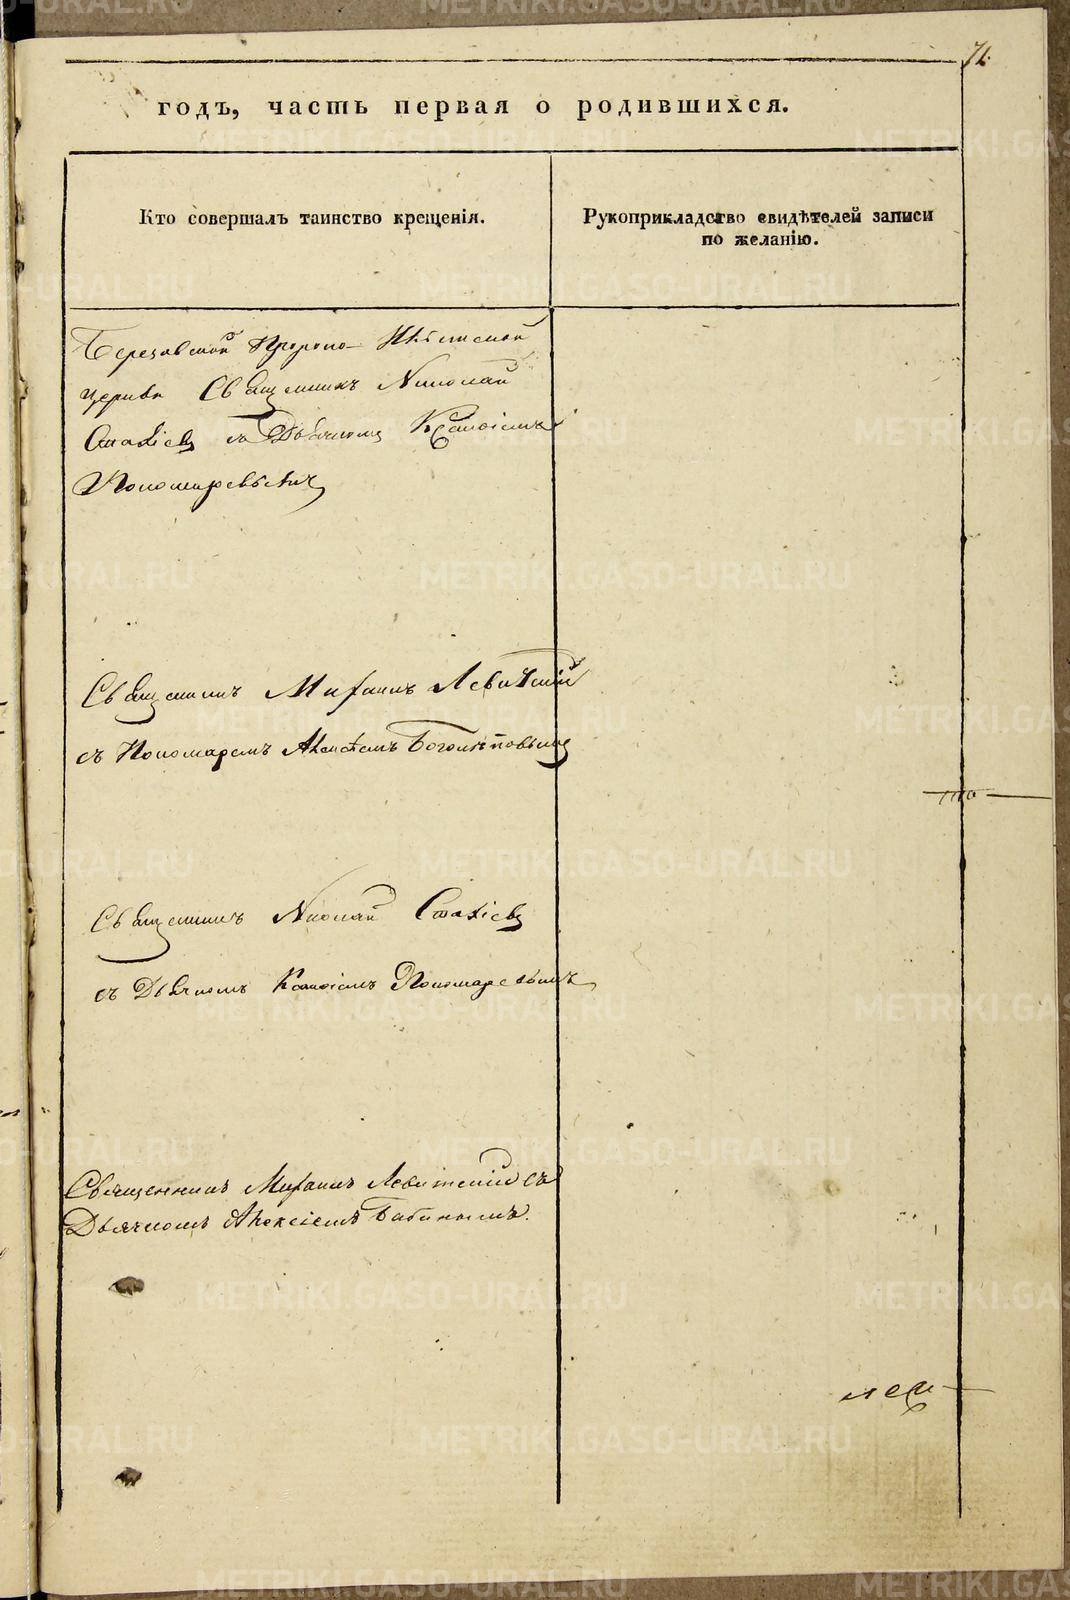 71.
годъ, часть первая о родившихся.
Кто совершалъ таинство крещенія.
Рукоприкладство свидѣтелей записи
по желанію.
Березовской Пророко-Ильинской
церкви Священникъ Николай
съ Дьячкомъ
Пономаревымъ
Священникъ Михаилъ Левитскій
съ Пономаремъ Алексѣемъ
Священникъ Николай
съ Дьячкомъ Пономаревымъ
Священникъ Михаилъ Левитскій съ
Дьячкомъ Алексіемъ Бабинымъ.
METRIKI.GASO-URAL.RU